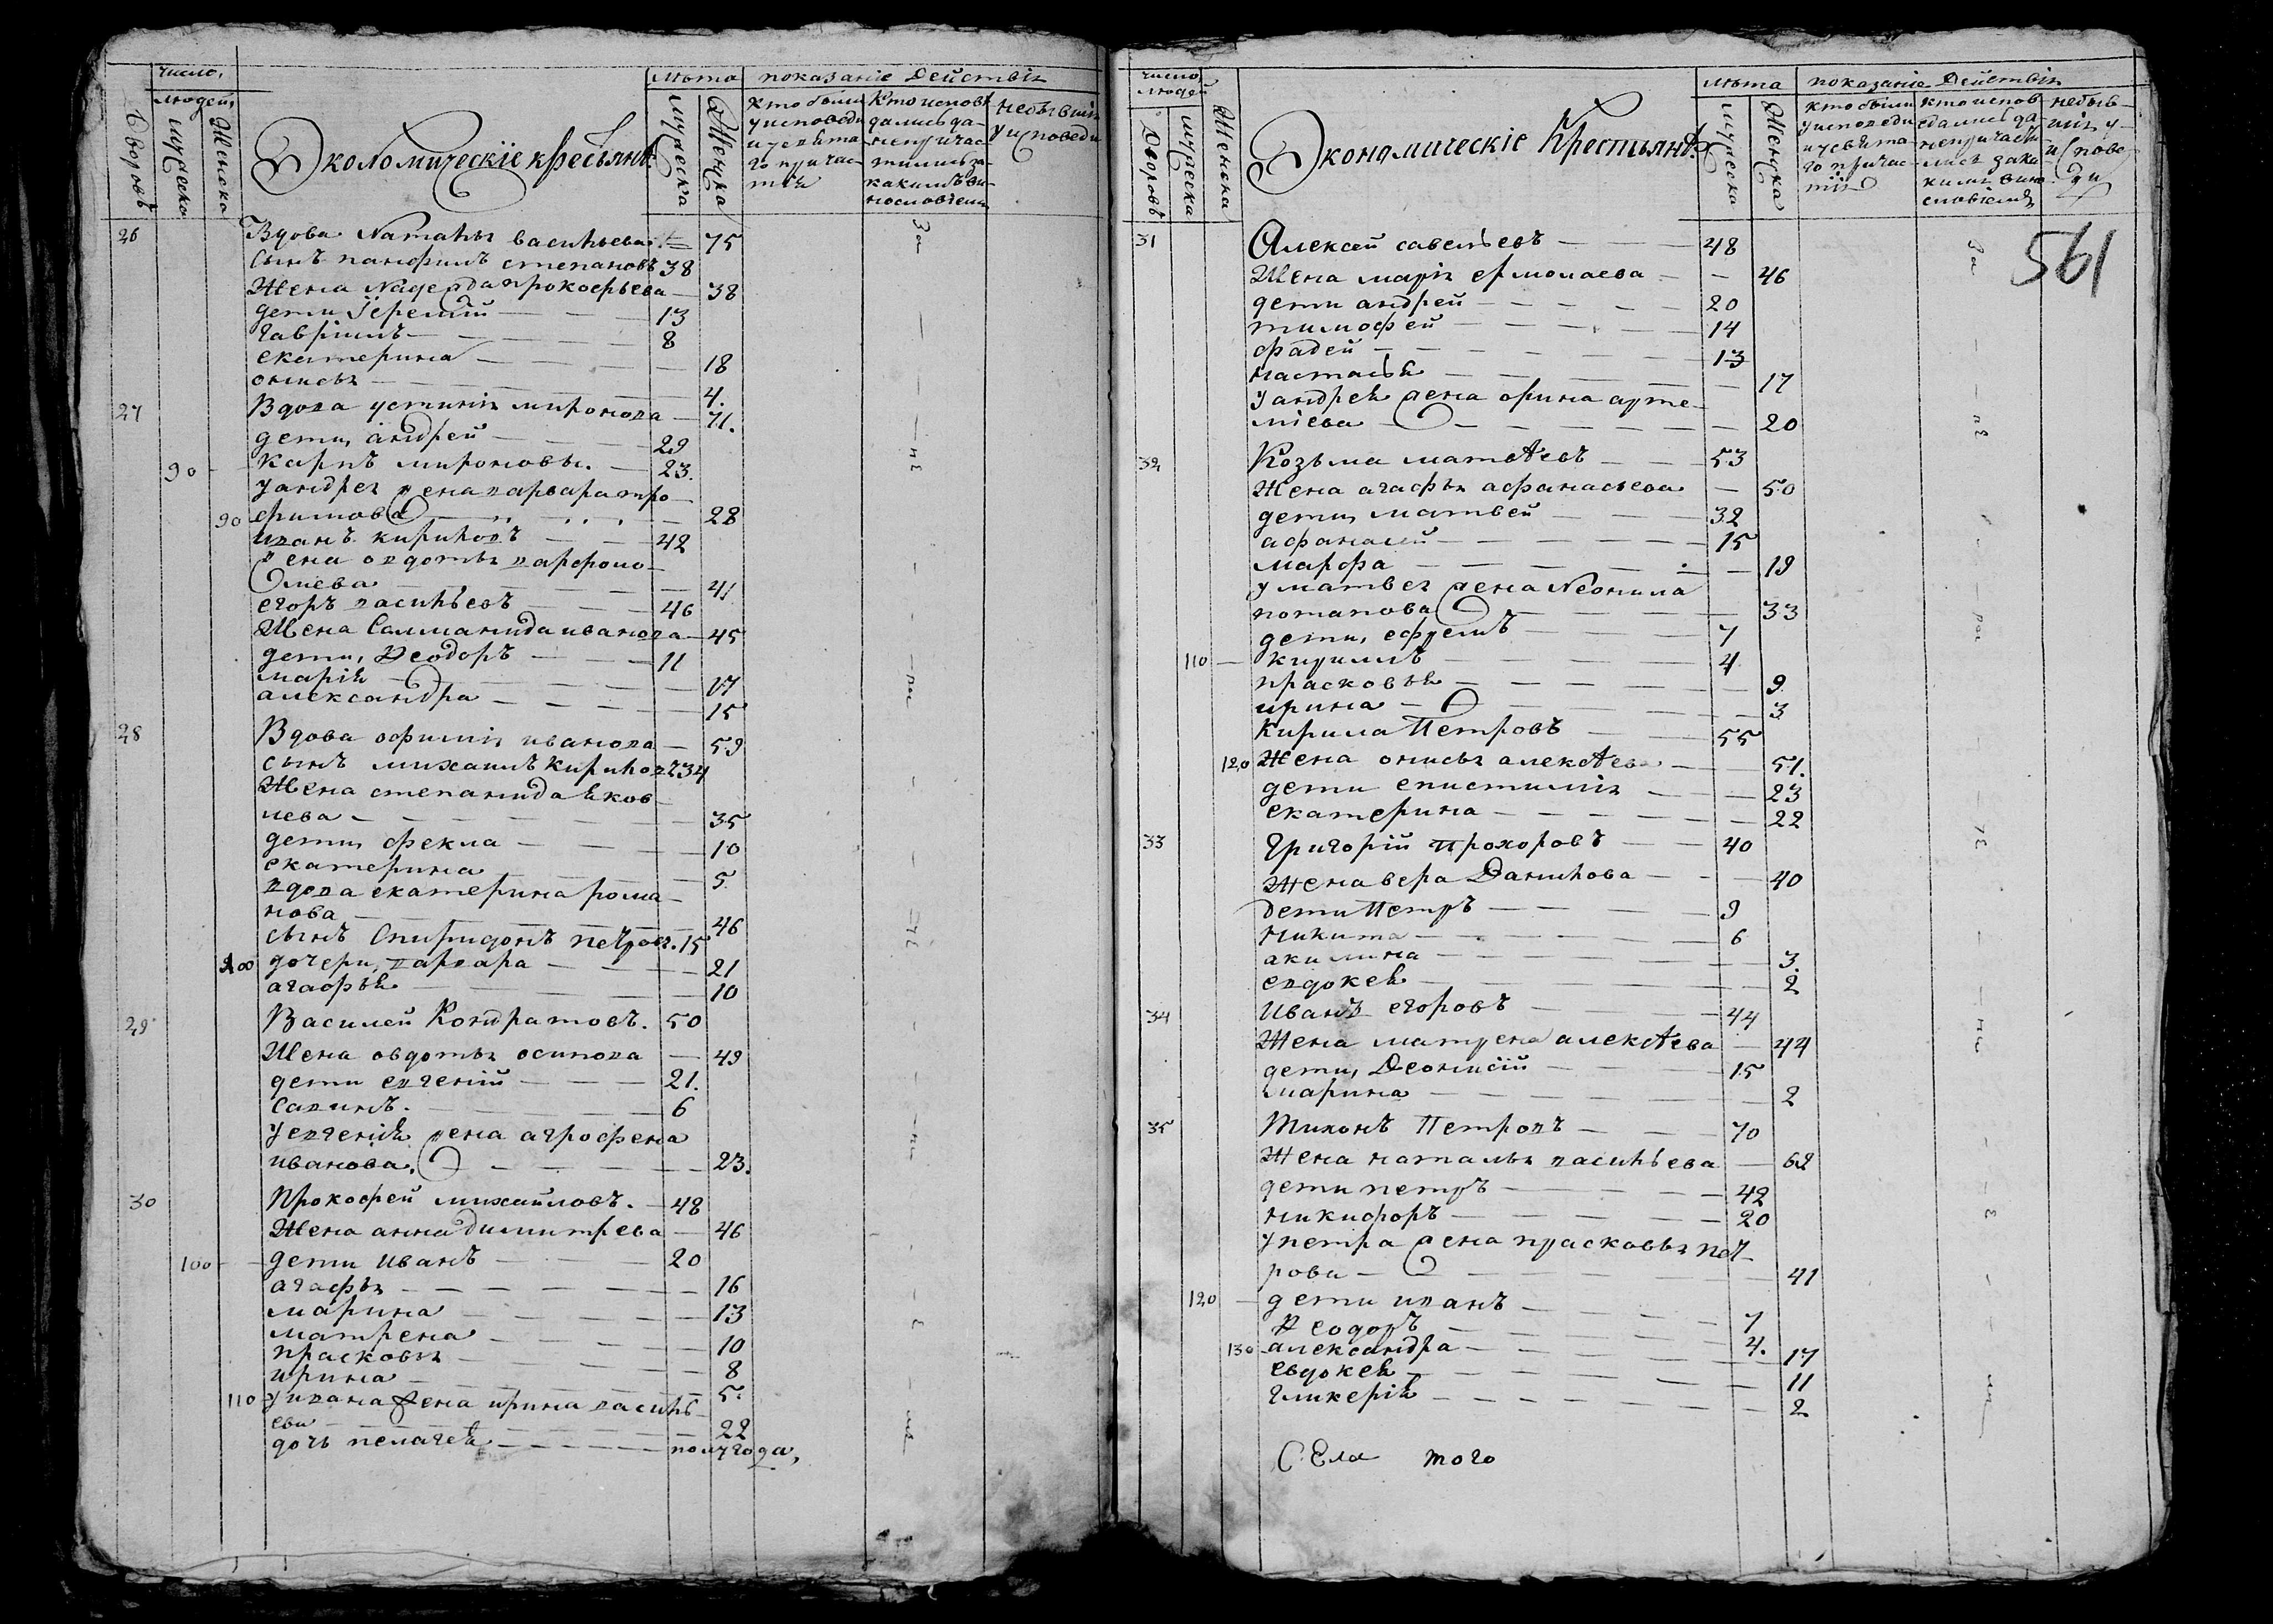 число,
людей,
Дворовъ
мужеска
Женска
Экономическіе кресьянѣ
лѣта
мужеска
Женска
показаніе Действія
Кто были
у исповеди
и у святa
го причас
тія
Кто испове
дались да
не причас
тились за
какимъ ви
нословіем
небывши
у исповеди
26 Вдова Наталья васильева 75
сынъ панфилъ степановъ 38
Жена Надежда прокофьева 38
дети Іеремій 13
гавріилъ 8
екатерина 18
онисья 4.
27 Вдова устинія миронова 71.
дети, андрей 29
90 карпъ мироновы. 23.
у андрея жена варвара тро
90 фимова 28
иванъ кириловъ 42
жена овдотья варфоло
меева 41
егоръ васильевъ 46
Жена Саламанида иванова 45
дети, Феодоръ 11
марія 17
александра 15
28 Вдова офимія иванова 59
сынъ михаилъ кириловъ 34
Жена степанида яков
лева 35
дети, фекла 10
екатерина 5
вдова екатерина рома
нова 46
сынъ Спиридонъ петров. 15
100 дочери, варвара 21
агафья 10
29 Василей Кондратовъ. 50
Жена овдотья осипова 49
дети евгеній 21.
савинъ. 6
у евгенія жена агрофена
иванова, 23.
30 Прокофей михайловъ. 48
Жена анна димитрева 46
100 дети иванъ 20
агафья 16
марина 13
матрена 10
прасковья 8
ирина 5.
110 у ивана жена ирина василь
ева 22
дочь пелагея полугода,
За
не
бы
число
людей
Дворовъ
мужеска
Женска
Экономическіе Крестьянѣ.
лѣта
мужеска
Женска
показаніе Действія
кто были
у исповеди
и у святa
го причас
тія
кто испов
едались да
не причасти
лись за ка
кимъ вино
словіемъ
небыв
шія у
испове
ди
561
31 Алексей савельевъ 48
Жена марія ермолаева 46
дети андрей 20
тимофей 14
фадей 13
настасья 17
у андрея жена орина арте
міева 20
32 Козьма матвѣевъ 53
Жена агафья афанасьева 50
дети, матвей 32
афанасей 15
марфа 19
у матвея жена Неонила
потапова 33
дети, ефремъ 7
110 кирилъ 4
прасковья 9
ирина 3
Кирила Петровъ 55
120 Жена онисья алекѣева 51.
дети епистимія 23
екатерина 22
33 Григорій Прохоровъ 40
Жена вера Данилова 40
дети Петръ 9
никита 6
акилина 3.
евдокея 2
34 Иванъ егоровъ 44
Жена матрена алекѣева 44
дети, Деонисій 15
марина 2
35 Тихонъ Петровъ 70
Жена наталья васильева 62
дети петръ 42
никифоръ 20
у петра жена прасковья пет
рова 41
120 дети иванъ 7
Феодоръ 4.
130 александра 17
евдокея 11
гликерія 2
За
Села того